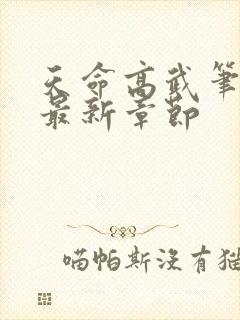 天命高武筆
最新章節
喵帕斯沒有猫